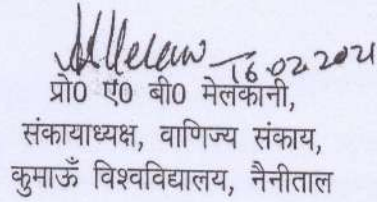 16.02.2021
प्रो0 ए0 बी0 मेलकानी,
संकायाध्यक्ष, वाणिज्य संकाय,
कुमाऊँ विश्वविद्यालय, नैनीताल